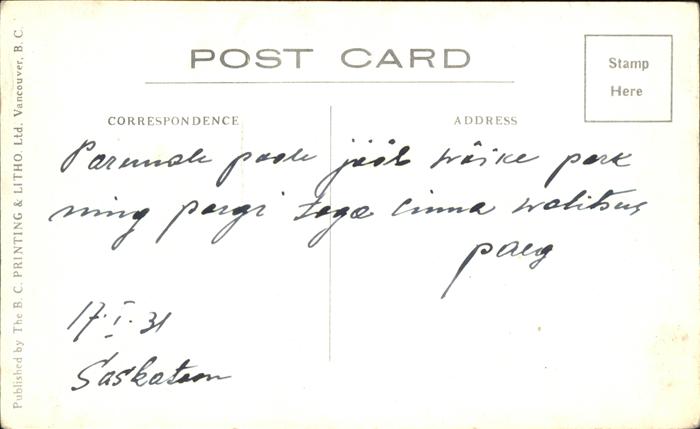 POST CARD
Stamp
Here
CORRESPONDENCE
ADDRESS
Paremale poole jääb wäike park
ning pargi taga linna walitsus
paeg
17. I. 31
Saskatoon
Published by The B. C. PRINTING & LITHO. Ltd. Vancouver, B. C.